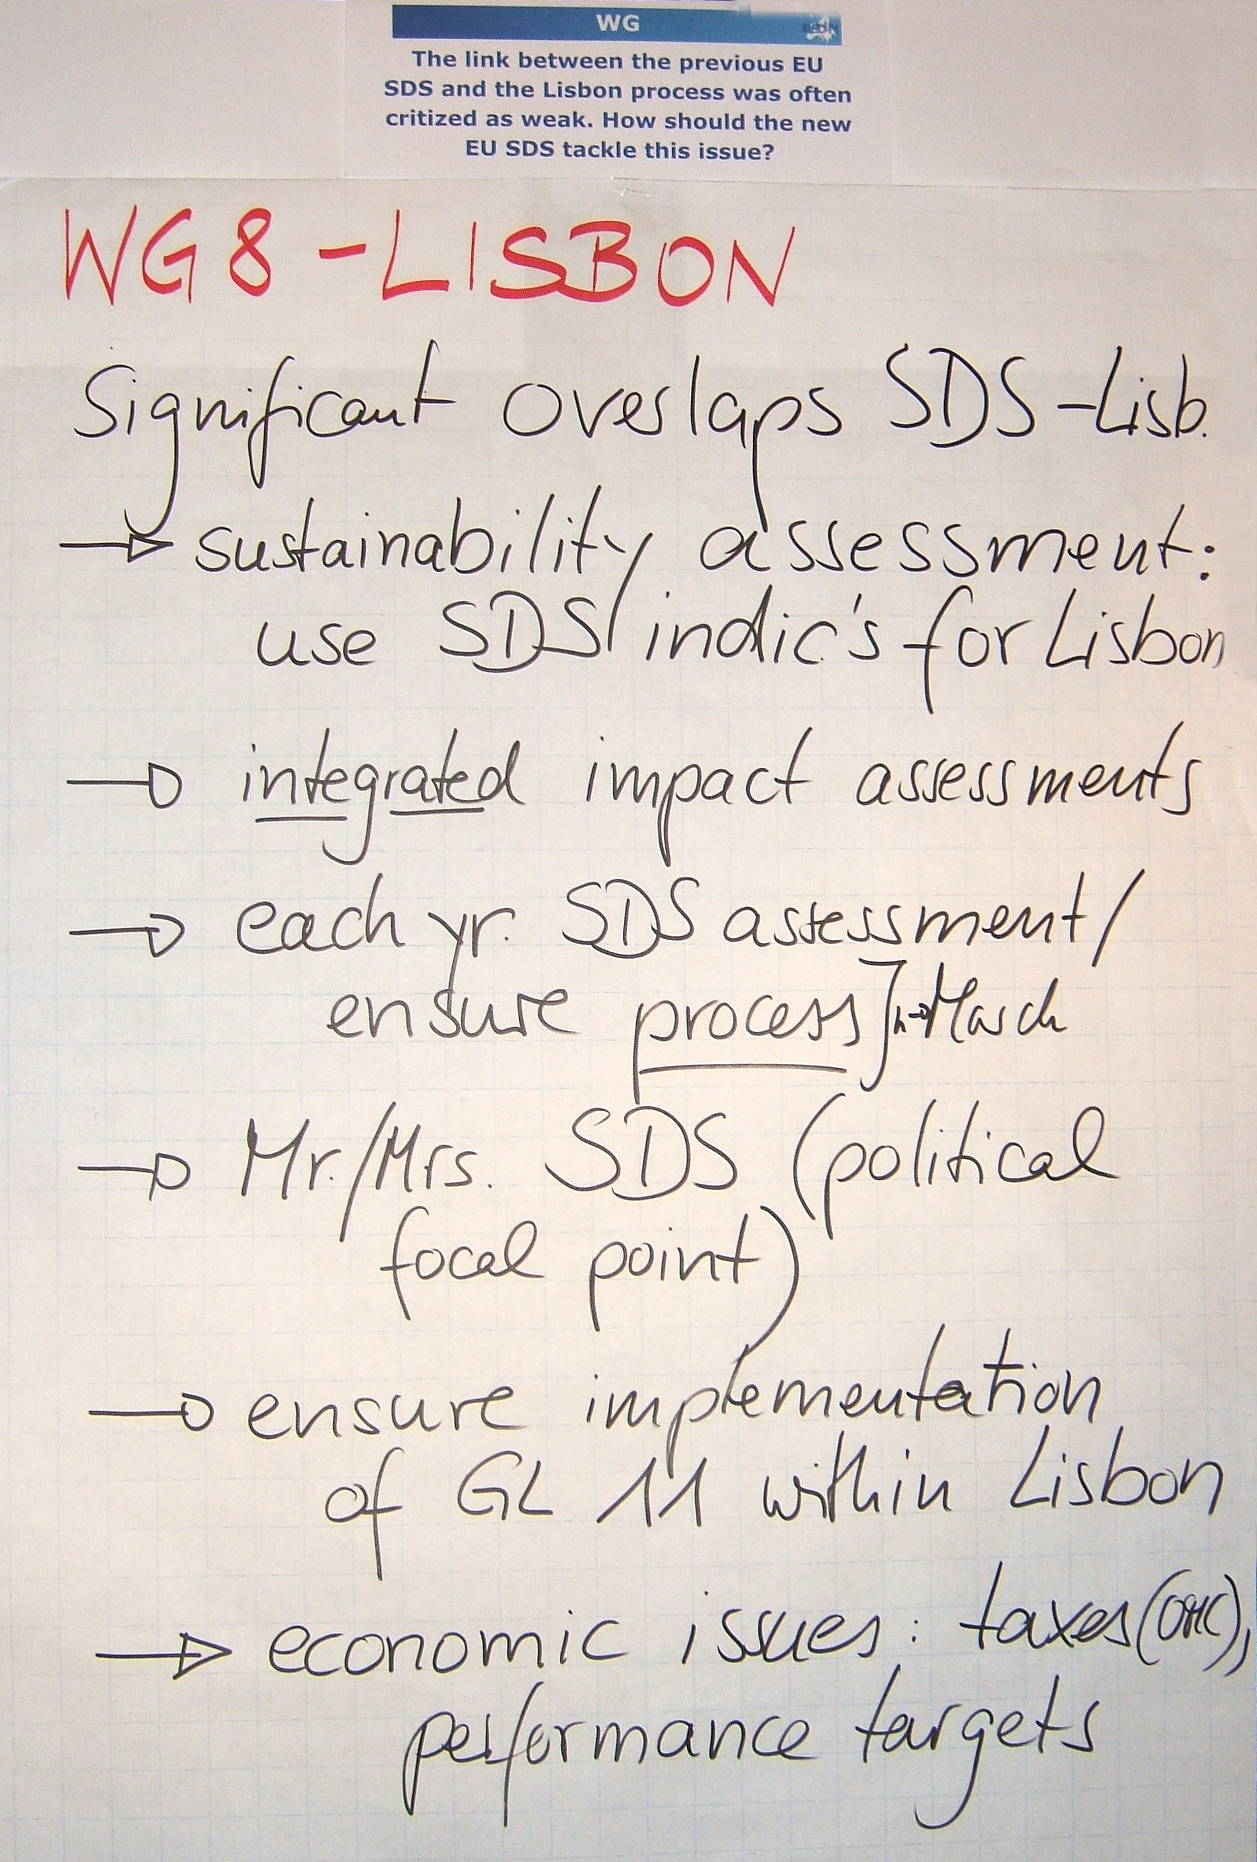 WG
The link between the previous EU
SDS and the Lisbon process was often
critized as weak. How should the new
EU SDS tackle this issue?
WG8 - LISBON
Significant overlaps SDS - Lisb.
→ sustainability assessment:
use SDS indic's for Lisbon
→ integrated impact assessments
→ each yr. SDS assessment/
ensure process] → March
→ Mr./Mrs. SDS (political
focal point)
→ ensure implementation
of GL 11 within Lisbon
→ economic issues: taxes (OMC),
performance targets